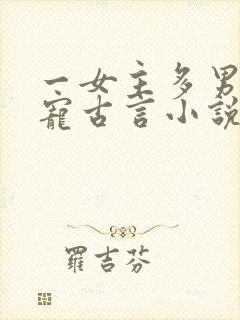 一女主多男
寵古言小説
羅吉芬